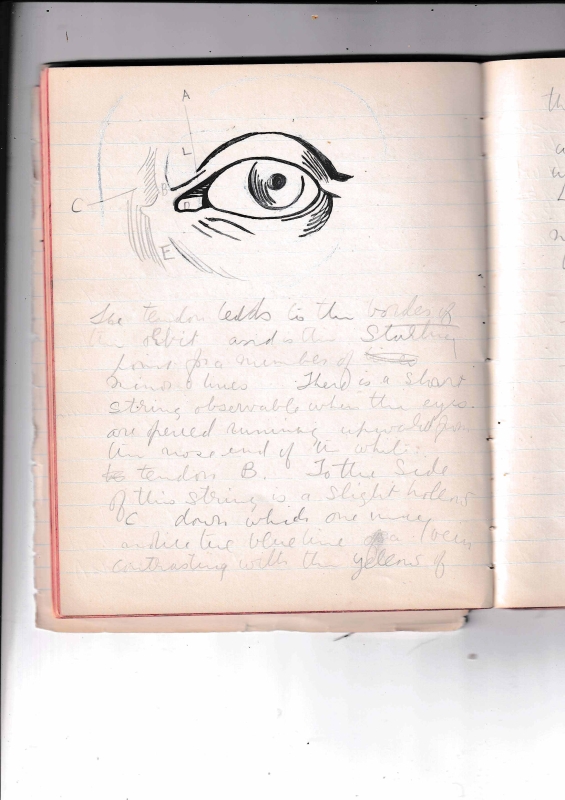 A
L
B
C
D
E
The tendon leads to the border of
the orbit and is the Starting
point for a number of
minor lines. There is a short
string observable when the eyes
are running upwards from
the nose end of the white
to tendon B. To the Side
of this string is a slight hollow
C down which one may
indicate blue line of a vein
contrasting with the yellow of
th